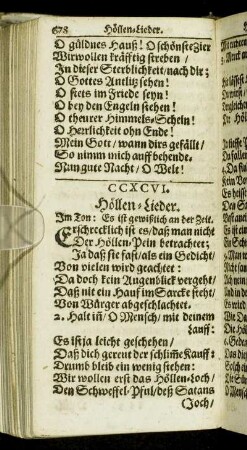 678 Höllen-Lieder.
O güldnes Hauß! O schönste Zier
Wir wollen kräfftig streben /
In dieser Sterblichkeit / nach dir;
O Gottes Antlitz sehen!
O stets im Friede seyn!
O bey den Engeln stehen!
O theurer Himmels-Schein!
O Herrlichkeit ohn Ende!
Mein Gott / wann dirs gefällt /
So nimm mich auff behende.
Nun gute Nacht / O Welt!
CCXCVI.
Höllen-Lieder.
Im Ton: Es ist gewißlich an der Zeit.
Erschrecklich ist es / daß man nicht
Der Höllen-Pein betrachtet;
Ja daß sie fast / als ein Gedicht /
Von vielen wird geachtet:
Da doch kein Augenblick vergeht /
Daß nit ein Hauf im Sarcke steht /
Von Würger abgeschlachtet.
2. Halt in / O Mensch / mit deinem
Lauff:
Es ist ja leicht geschehen /
Daß dich gereut der schlime Kauff:
Drumb bleib ein wenig stehen:
Wir wollen erst das Höllen-Loch /
Den Schweffel-Pful / deß Satans
(Joch /